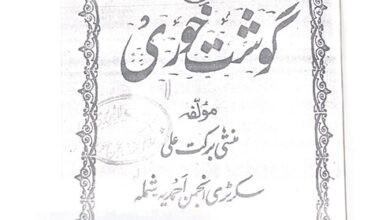 گوشت خوری
مؤلفہ
منشی برکت علی
سکرٹری انجمن احمدیہ شملہ